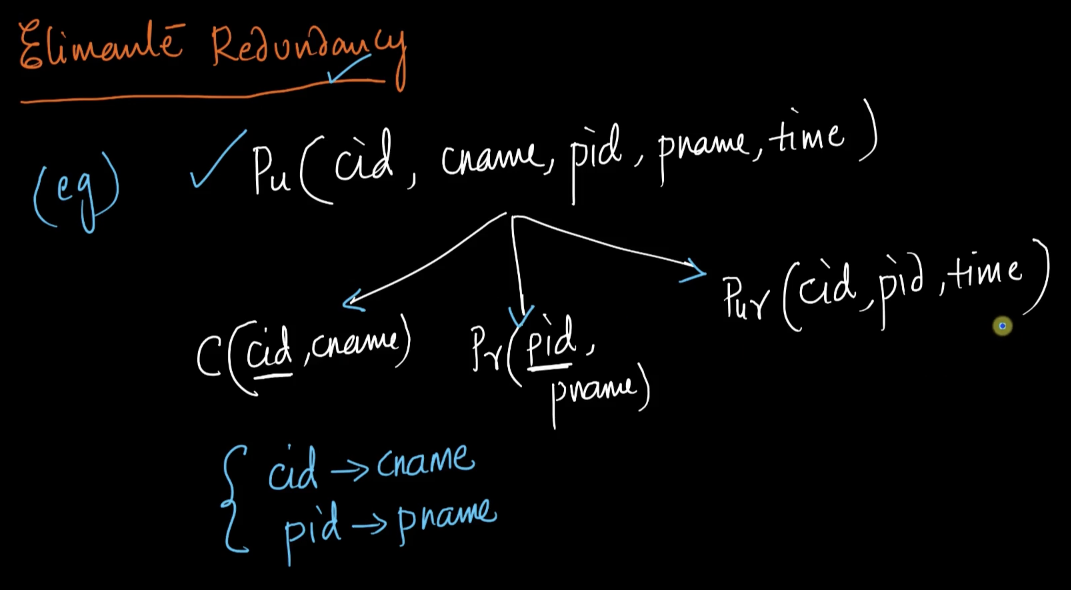 Eliminate Redundancy
(eg) Pu(cid, cname, pid, pname, time)
C(cid, cname) Pr(pid, pname) Pur(cid, pid, time)
cid → cname
pid → pname